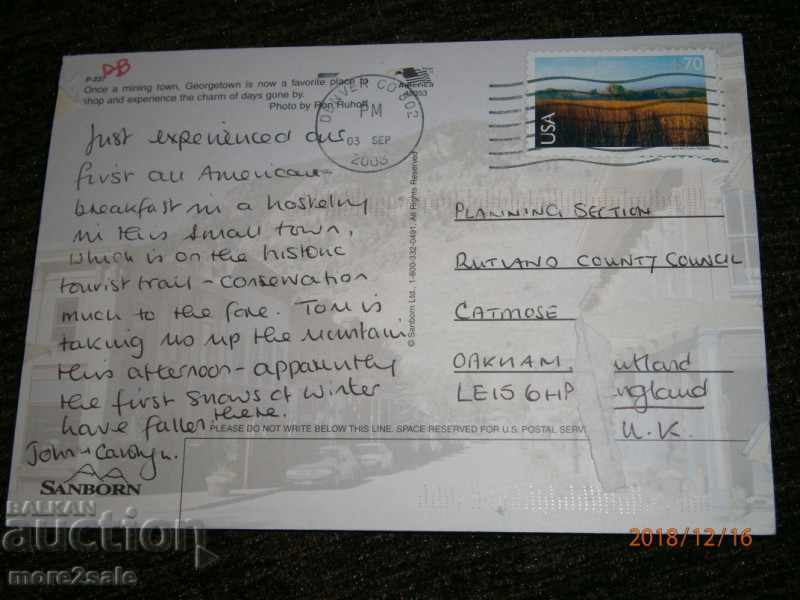 P-237 DB
Once a mining town, Georgetown is now a favorite place to
shop and experience the charm of days gone by.
Photo by Ron Ruhoff
America
DENVER CO 802
PM
03 SEP
2003
70
USA
Just experienced our
first all American
breakfast in a hostelry
in this small town,
which is on the historic
tourist trail - conservation
much to the fore. Tom is
taking us up the mountain
this afternoon - apparently
the first snows of winter
have fallen there.
John & Carolyn.
SANBORN
© Sanborn Ltd., 1-800-332-0491. All Rights Reserved
PLANNING SECTION
RUTLAND COUNTY COUNCIL
CATMOSE
OAKHAM, utland
LE15 6HP ngland
U.K.
PLEASE DO NOT WRITE BELOW THIS LINE. SPACE RESERVED FOR U.S. POSTAL SERV
BALKAN
auction
more2sale
2018/12/16